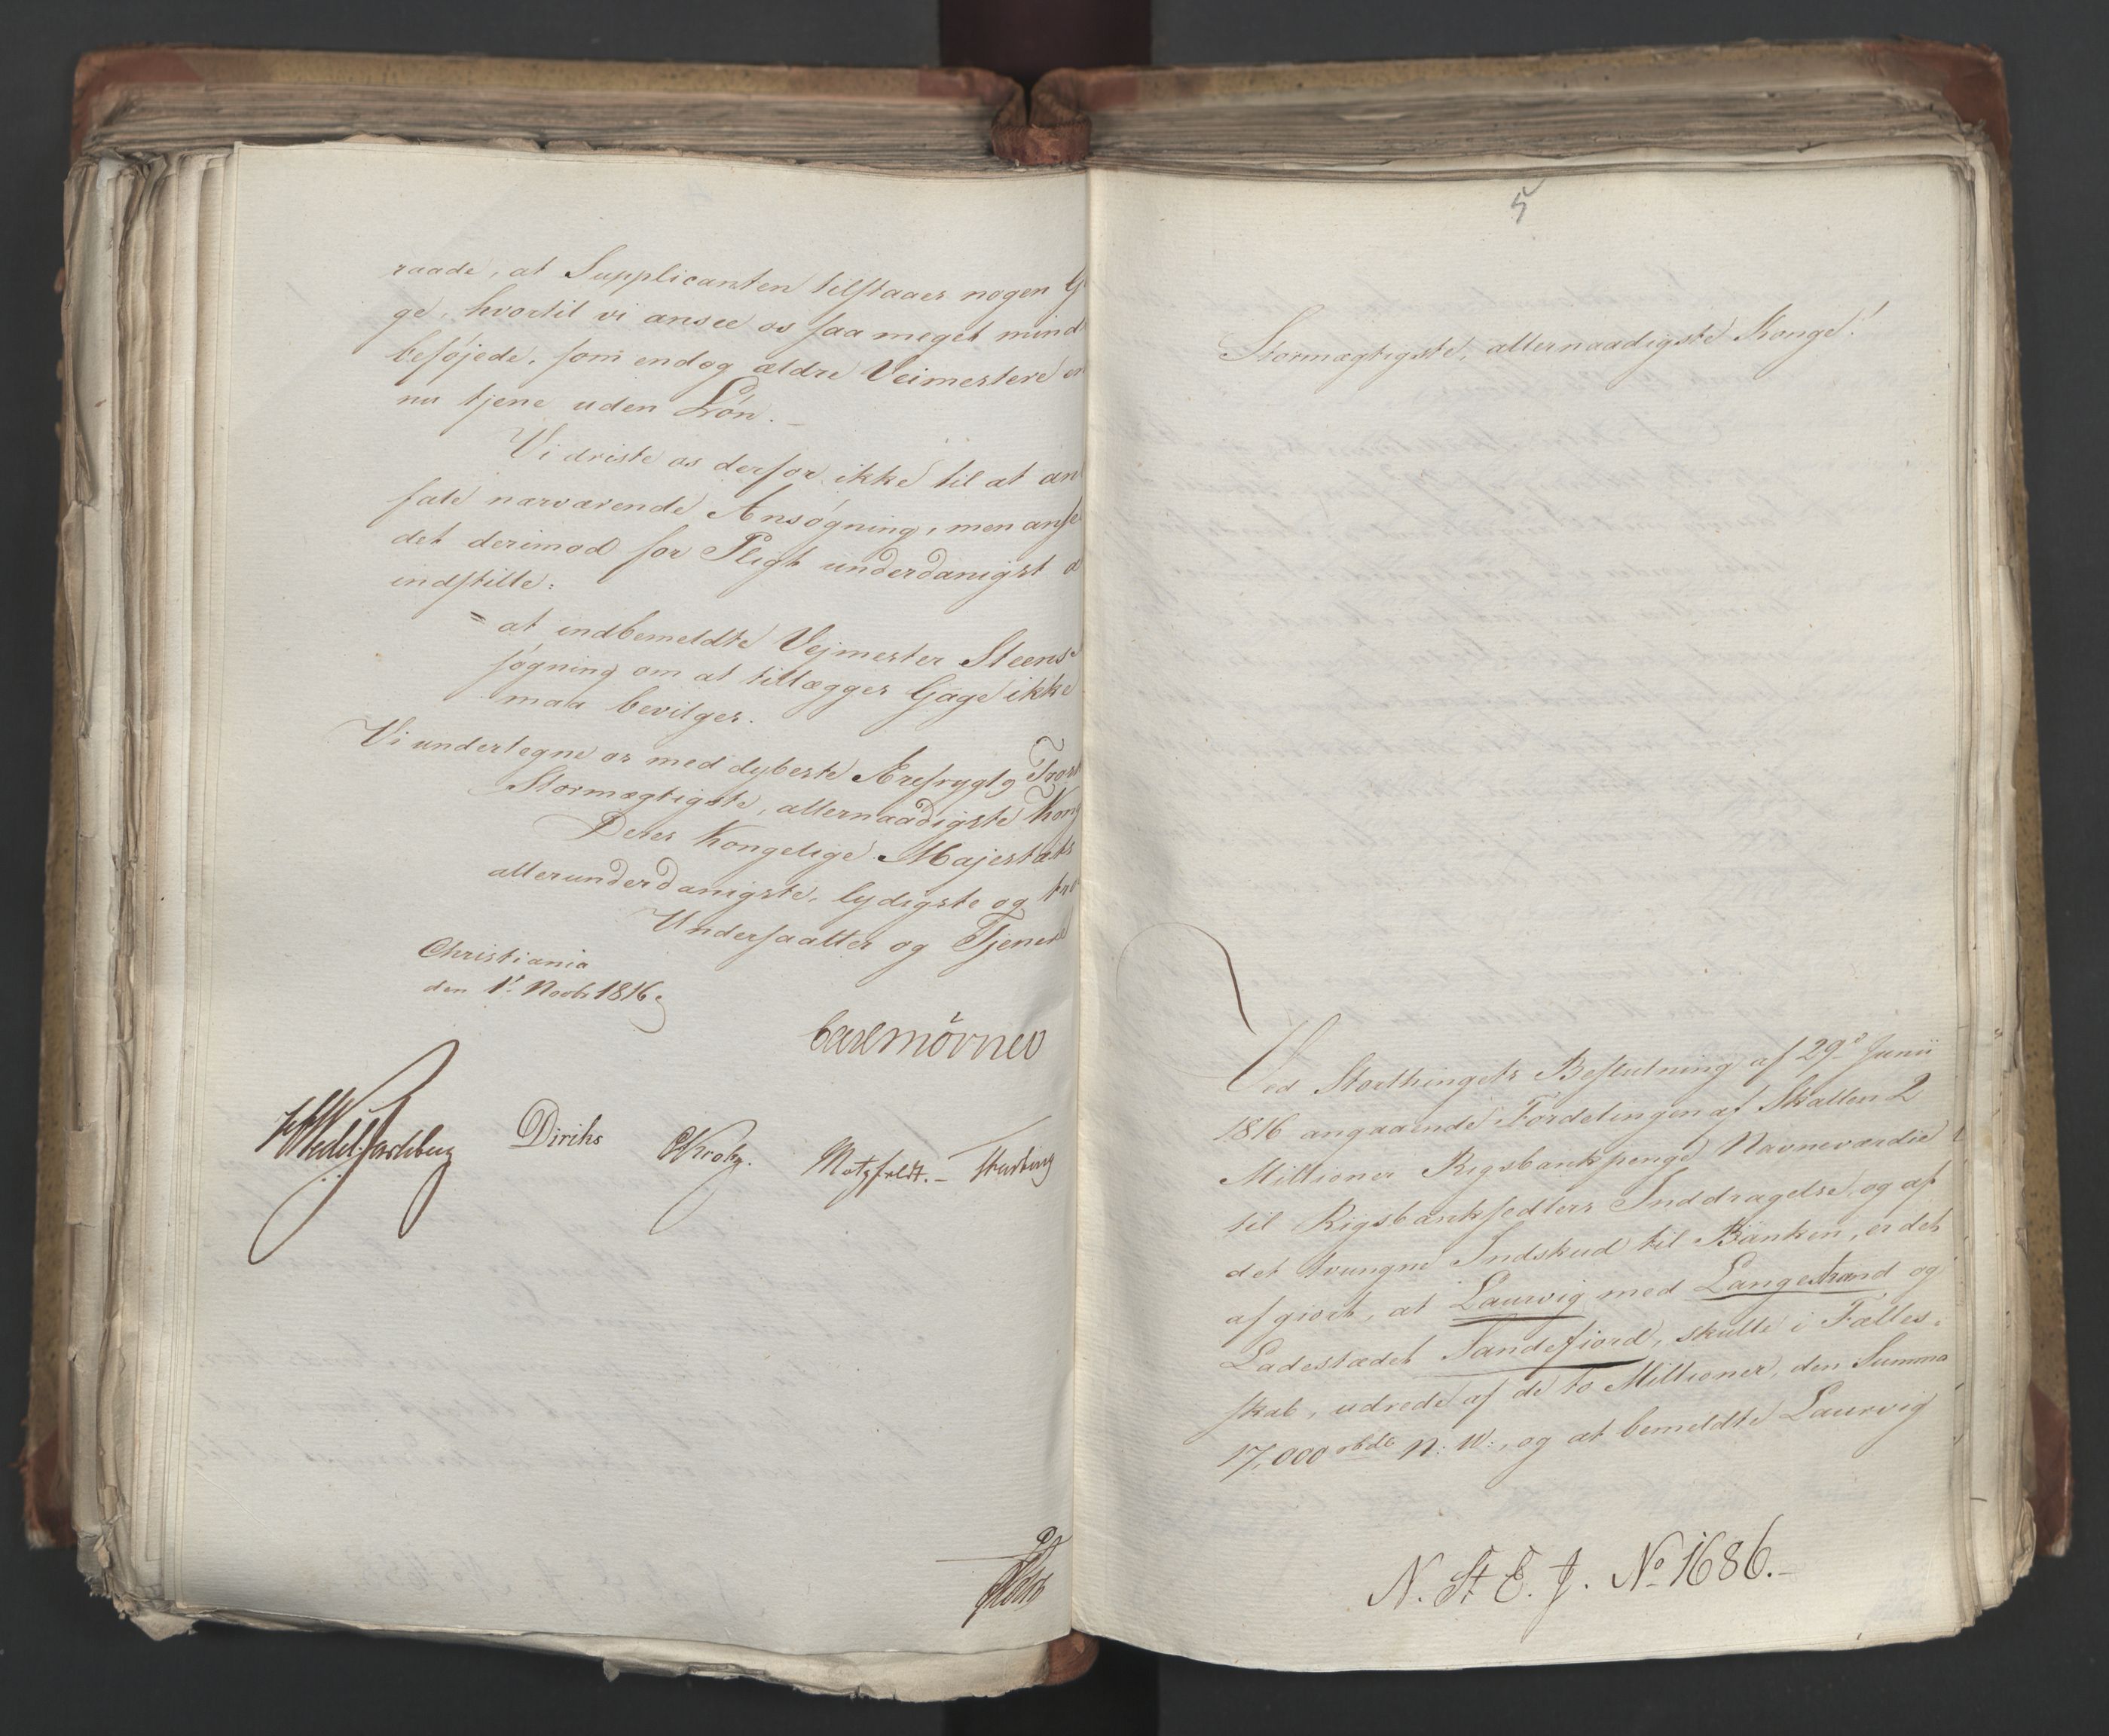 raade, at Supplicanten tilstaaes nogen G
ge, hvortil vi ansee os saa meget mind
beføjede, som endog ældre Veimestere en
nu tjene uden Løn. –
Vi driste os derfor ikke til at an
fale nærværende Ansøgning, men anse
det derimod for Pligt underdanigst a
indstille:
= at indbemeldte Vejmester Steens
søgning om at tillægges Gage ikke
maa bevilges.
Vi undertegne os med dybeste Ærefrygt
Stormægtigste, allernaadigste Kong
Deres Kongelige Majestæts
allerunderdanigste, lydigste og tro
Undersaatter og Tjenere
Christiania
den 1ste Novbr 1816
Carl Mörner
HWedel Jarlsberg Diriks CKrohg. Motzfeldt. –
5
Stormægtigste, allernaadigste Konge!
Ved Storthingets Beslutning af 29de Junii
1816 angaaende Fordelingen af Skatten 2
Millioner Rigsbankpenge Navneværdie
til Rigsbanksedlers Inddragelse, og af
det tvungne Indskud til Banken, er det
afgiort, at Laurvig med Langestrand og
Ladestædet Sandefiord, skulle i Fælles-
skab, udrede af de to Millioner, den Summa
17,000 rbdlr N: W:, og at bemeldte Laurvig
N. St. E. J. No 1686. –